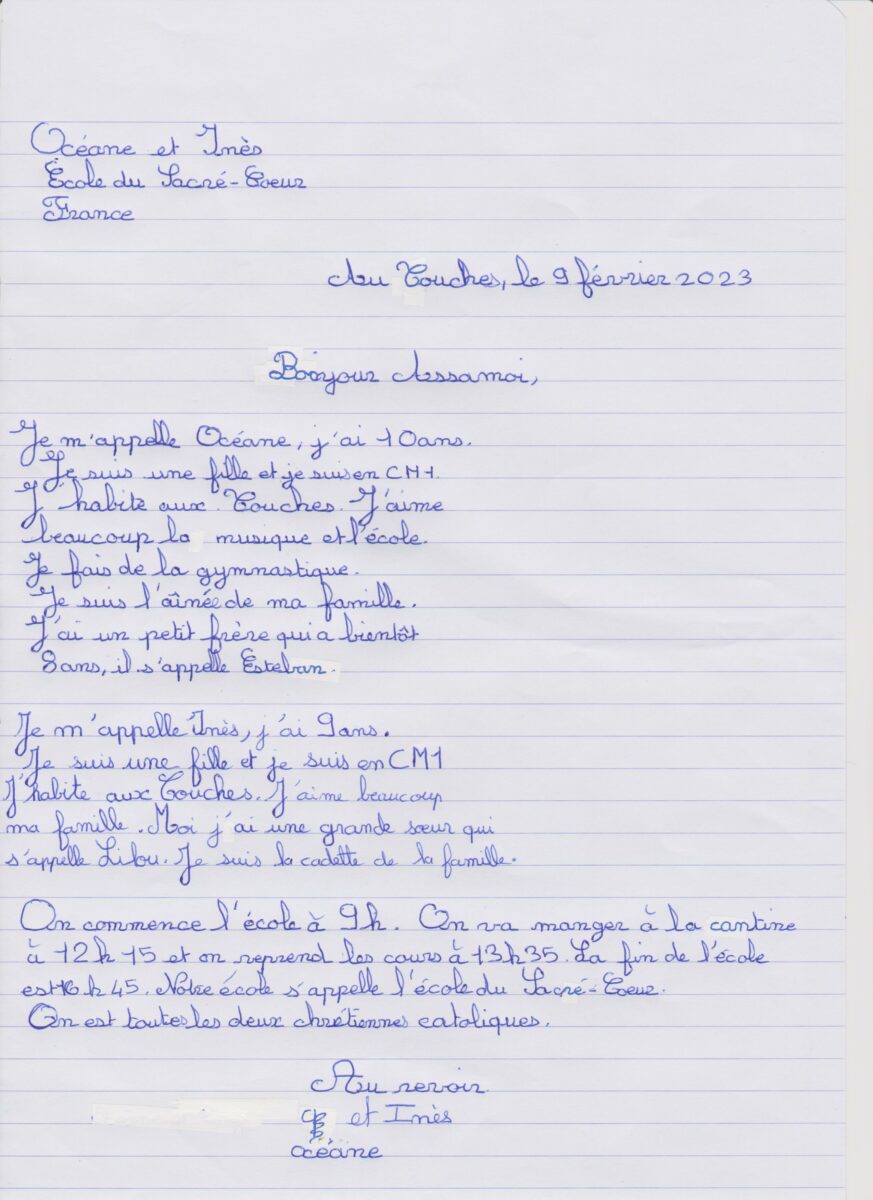 Océane et Inès
École du Sacré-Coeur
France
Au Touches, le 9 février 2023
Bonjour Assamoi,
Je m'appelle Océane, j'ai 10 ans.
Je suis une fille et je suis en CM1.
J'habite aux Touches. J'aime
beaucoup la musique et l'école.
Je fais de la gymnastique.
Je suis l'aînée de ma famille.
J'ai un petit frère qui a bientôt
8 ans, il s'appelle Esteban.
Je m'appelle Inès, j'ai 9 ans.
Je suis une fille et je suis en CM1
J'habite aux Touches. J'aime beaucoup
ma famille. Moi j'ai une grande sœur qui
s'appelle Lilou. Je suis la cadette de la famille.
On commence l'école à 9h. On va manger à la cantine
à 12h15 et on reprend les cours à 13h35. La fin de l'école
est 16h45. Notre école s'appelle l'école du Sacré-Coeur.
On est toutes les deux chrétiennes catoliques.
Au revoir
et Inès
océane